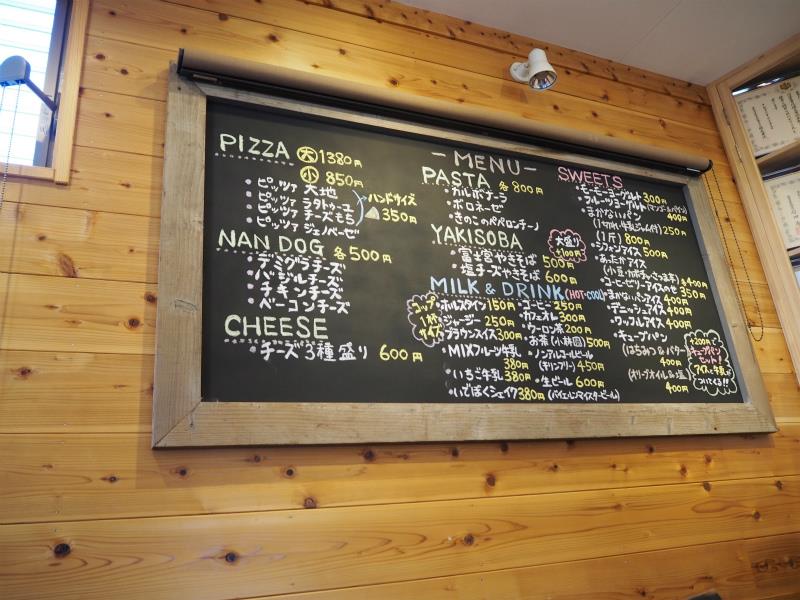 - MENU -
PIZZA 大 1380円
小 850円
・ピッツァ 大地
・ピッツァ ラタトゥーユ
・ピッツァ チーズもち
・ピッツァ ジェノベーゼ
ハンドサイズ
350円
NAN DOG 各500円
・デミグラチーズ
・バジルチーズ
・チキンチーズ
・ベーコンチーズ
CHEESE
・チーズ3種盛り 600円
PASTA 各800円
・カルボナーラ
・ボロネーゼ
・きのこのペペロンチーノ
YAKISOBA
大盛り
+100円
・富士宮やきそば 500円
・塩チーズやきそば 600円
MILK & DRINK (HOT・COOL)
コップ
1杯
サイズ
・ホルスタイン 150円
・ジャージー 250円
・ブラウンスイス 300円
・MIXフルーツ牛乳
380円
・いちご牛乳 380円
・いでぼくシェイク 380円
・コーヒー 250円
・カフェオレ 300円
・ウーロン茶 200円
・お茶(小林園) 500円
・ノンアルコールビール
(キリンフリー) 450円
・生ビール 600円
(バイエルンマイスタービール)
SWEETS
・モーモーヨーグルト 300円
・フルーツヨーグルト(マンゴー&パイン)
400円
・まかないパン
(1切れ・牛乳ジャム付) 250円
(1斤) 800円
・シフォンアイス 500円
・あったかアイス
(小豆・カボチャ・さつま芋) 各400円
・コーヒーゼリーアイスのせ 350円
・まかないパンアイス 400円
・デニッシュアイス 400円
・ワッフルアイス 400円
・キューブパン
(はちみつ&バター)
400円
(オリーブオイル&塩)
400円
+200円で
キューブパン
セット!
アイスと牛乳が
ついてくる!!